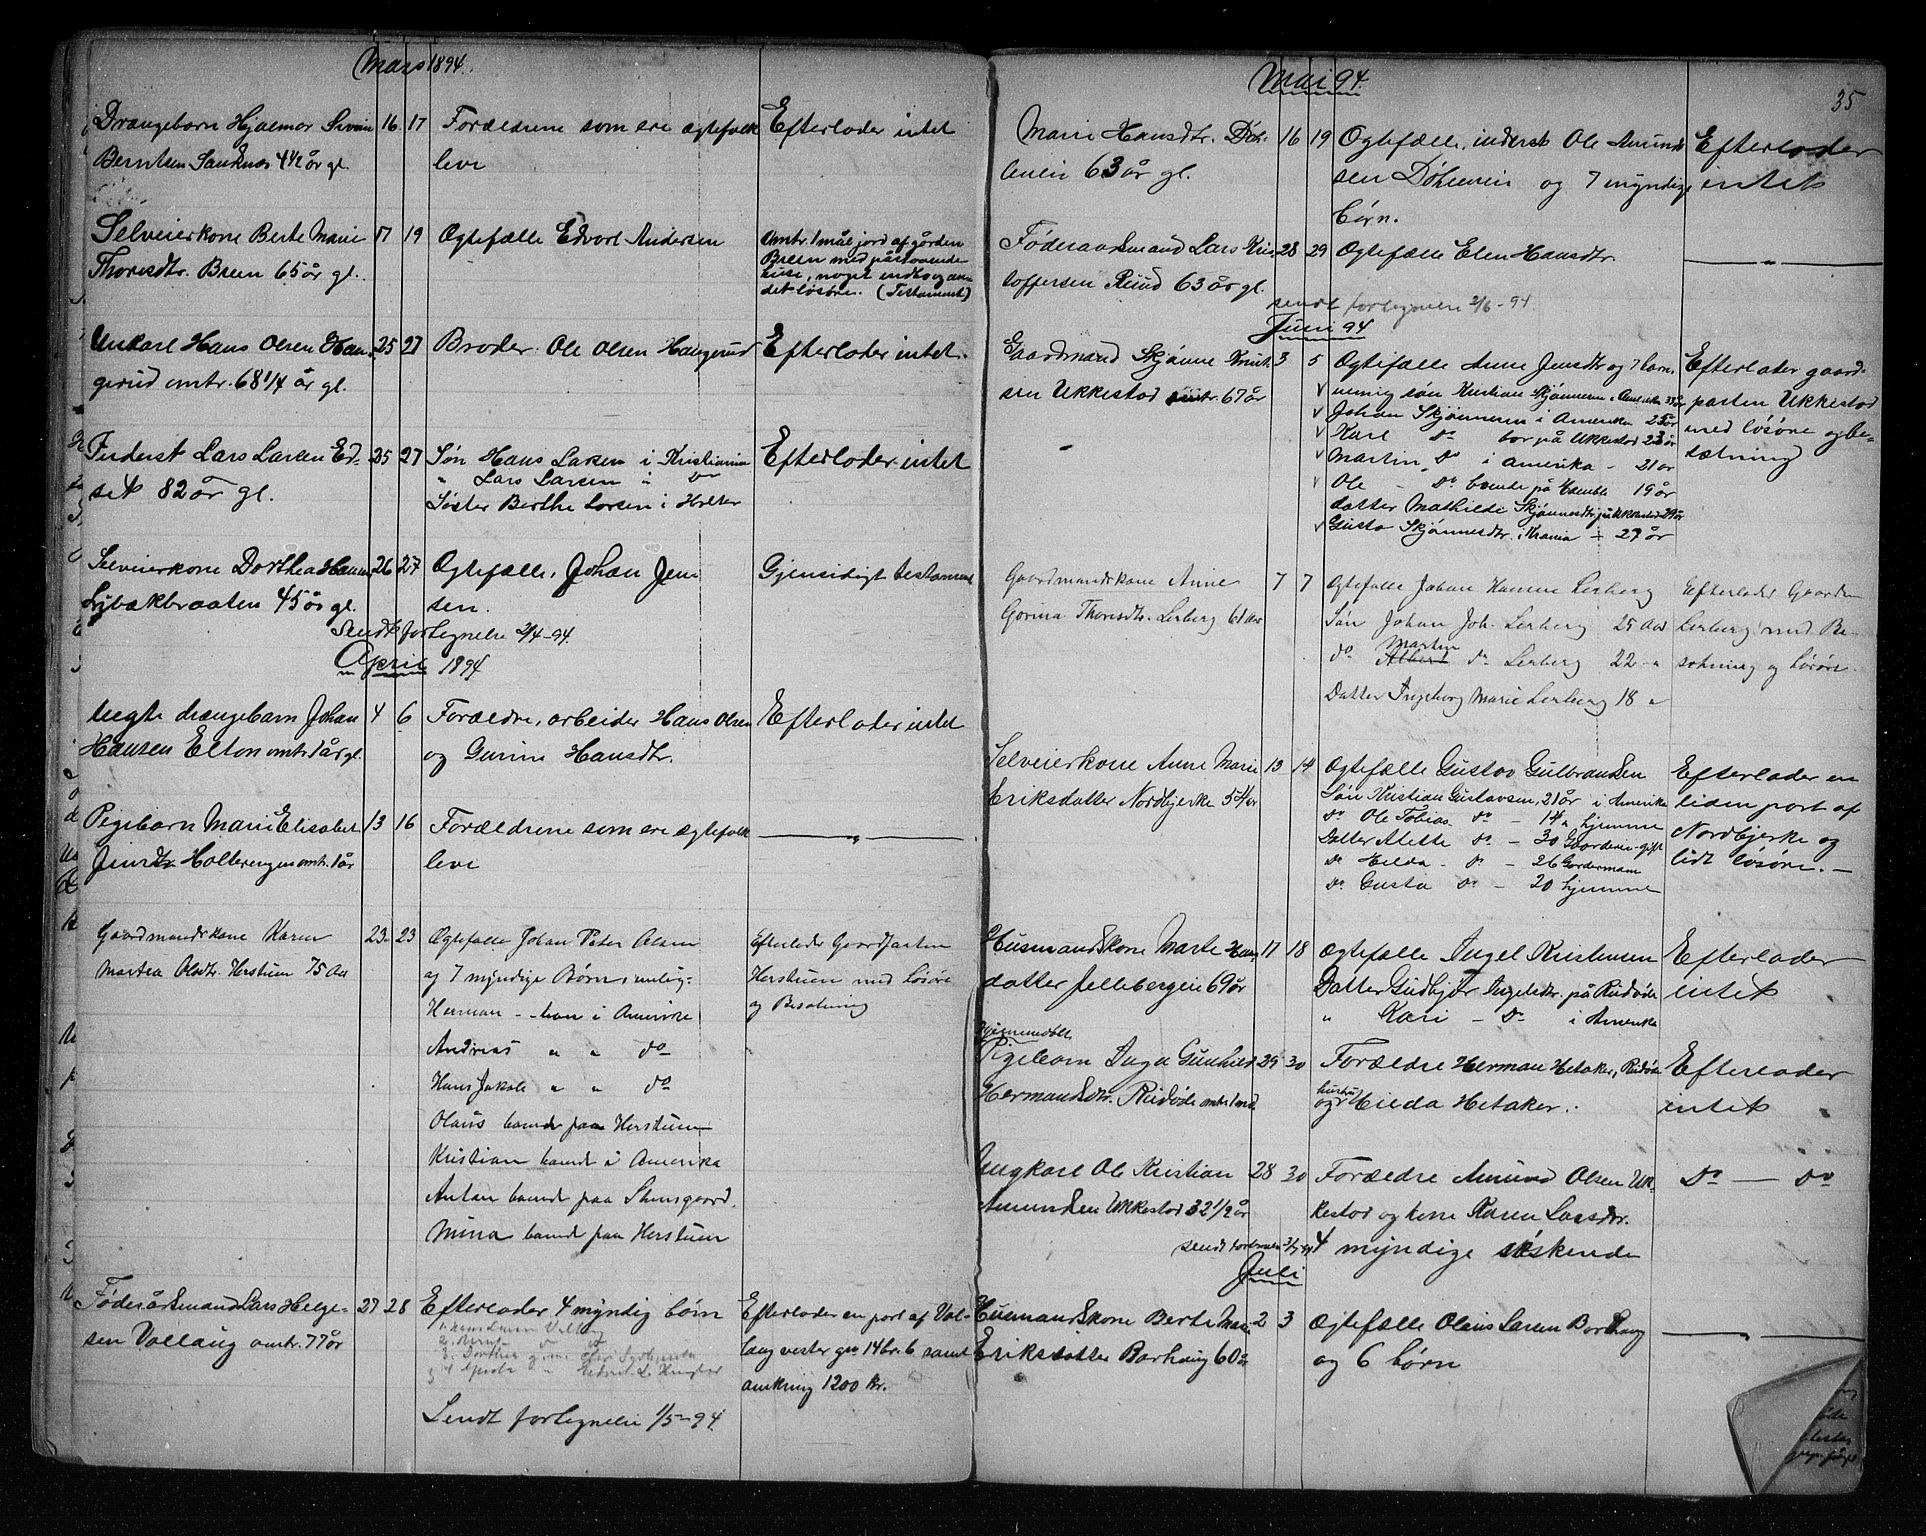 Mars 1894.
Drængebarn Hjalmar 16 17 Forældrene som ere ægtefolk Efterlader intet
Berntsen Sandnes 4½ år gl. leve
Selveierkone Berte Marie 17 19 Ægtefælle Edvart Andersen Omtr. 1 mål jord af gården
Thorsdtr. Breen 65 år gl. Breen med påstående
huse, noget indbo og an-
det løsøre. (Testament)
Unkarl Hans Olsen Hau- 25 27 Broder Ole Olsen Haugerud Efterlader intet.
gerud omtr. 68 1/4 år gl.
Inderst Lars Larsen Ed- 25 27 Søn Hans Larsen i Kristiania Efterlader intet
set 82 år gl. " Lars Larsen " Do
Søster Berthe Larsen i Holter
Selveierkone Dorthea Hansen 26 27 Ægtefælle, Johan Jen Gjensidigt testament
Lybækbraaten 45 år gl. sen.
Sendt fortegnelse 2/4-94.
April 1894
Uægte drængebarn Johan 4 6 Forældre, arbeider Hans Olsen Efterlader intet
Hansen Elton omtr. 1 år gl. og Gunine Hansdtr.
Pigebarn Marie Elisabet 13 16 Forældrene som ere ægtefolk — " —
Jensdtr. Holterengen omtr. 1 år leve
Gaardmandskone Karen 23 23 Ægtefælle Johan Peter Olsen Efterlader Gaardparten
Martea Olsdtr. Herstuen 75 Aar og 7 myndige Børn nemlig: Herstuen med Løsøre
Herman - - i Amerika og Besætning
Andreas " " do
Hans Jakob " " do
Olaus boende paa Herstuen
Kristian boende i Amerika
Anton boende paa Stensgaard.
Mina boende paa Herstuen
Føderådsmand Lars Helge- 27 28 Efterlader 4 myndig børn Efterlader en part af Val-
sen Vallaug omtr. 77 år laug vester gn 14 br. 6 samt
omkring 1200 kr.
Sendt fortegnelse 1/5-94.
Mai 94.
35
Marie Hansdtr. Døh- 16 19 Ægtefælle, inderst Ole Amund Efterlader
lenein 63 år gl. sen Døhlenein og 7 myndige intet
børn.
Føderaadsmand Lars Kris 28 29 Ægtefælle Elen Hansdtr. — " —
toffersen Ruud 63 år gl.
sendt fortegnelse 2/6-94.
Juni 94
Gaardmand Skjønne Knut- 3 5 Ægtefælle Anne Jensdtr og 7 børn Efterlader gaard-
sen Ukkestad omtr. 67 år nemlig søn Kristian Skjønnesen i Amerika år parten Ukkestad
Johan Skjønnesen i Amerika 25 år med løsøre og be-
Karl Do bor på Ukkestad 23 år sætning
Martin Do i Amerika - 21 år
Ole - Do boende på 19 år
datter Mathilde Skjønnesdtr på Ukkestad 29 år
Gusta Skjønnesdtr. i Krania - 27 år
Gaardmandskone Anne 7 7 Ægtefælle Johan Hansen Lerberg Efterlader Gaarden
Gorina Thorsdtr. Lerberg 61 Aar Søn Johan Joh. Lerberg 25 Aar Lerberg med Be-
do Martin do Lerberg 22 - " sætning og Løsøre.
Datter Ingeborg Marie Lerberg 18 "
Selveierkone Anne Marie 13 14 Ægtefælle Gustav Gulbrandsen Efterlader en
Eriksdatter Nordbjerke 54 år Søn Kristian Gustavsen, 21 år i Amerika liden part af
Do Ole Tobias Do - 14 " hjemme Nordbjerke og
Datter Alette Do - 30 Gaarderen gift lidt løsøre. —
Do Hilda - Do - 26 Gardermoen
Do Gusta Do - 20 hjemme
Husmandskone Marte Hans 17 18 Ægtefælle Ingel Kristensen Efterlader
datter Jellebergeie 69 år Datter Gudbjør Ingelsdtr. på Rudøde intet
" Kari - Do i Amerika
hjemmedøbt
Pigebarn Inga Gunhild 29 30 Forældre Herman Hetaker, Rudøde Efterlader
Hermandsdtr. Rudøde omtr. 1 md. og hustru Hilda Hetaker. intet
Ungkarl Ole Kristian 28 30 Forældre Amund Olsen Uk- Do — Do
Amundsen Ukkestad 32 1/2 år kestad og kone Karen Larsdtr.
4 myndige søskende
Juli
Husmandskone Berte Mari 2 3 Ægtefælle Olaus Larsen Borhaug — —
Eriksdatter Borhaug 60 år og 6 børn